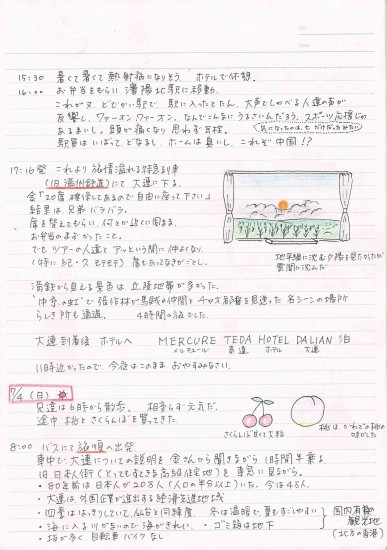 15:30 暑くて暑くて熱射病になりそう。ホテルで休憩。
16:00 お弁当をもらい瀋陽北駅に移動。
これが又、どでかい駅で、駅に入ったとたん、大声でしゃべる人達の声が
反響し、ワァーオンワァーオン。なんでこんなにうるさいんだろう。スポーツ応援じゃ
あるまいし。頭が痛くなり思わず耳栓。
(気になったのは、七だけだったみたい)
駅員はいばって、どなるし、ホームは臭いし、これぞ中国!??
17:16発 これより旅情溢れる特急列車
(旧満州鉄道)にて大連に下る。
金「20席確保してあるので自由に座って下さい」
結果は、兄弟バラバラ。
席を替えてもらい、何とか近くに固まる。
お弁当のまずかったこと。
でもツアーの人達とアッという間に仲よくなり、
(特に紀・久モテモテ)席もあってなきがごとし。
地平線に沈む夕陽を見たかったが
雲間に沈んだ
満鉄から見える景色は丘陵地帯が多かった。
"中原の虹"で張作林が馬賊の仲間とチャオ部落を見渡した名シーンの場所
らしき所も通過。 4時間の旅でした。
大連到着後 ホテルへ MERCURE TEDA HOTEL DALIAN 泊
メルキュール 泰達 ホテル 大連
11時近かったので、今夜はこのままおやすみなさい。
7/4 (日)
兄達は6時から散歩。相変らず元気だ。
途中 桃とさくらんぼを買ってきた。
さくらんぼ甘くて大粒
桃は、かたどの桃の
味がした
8:00 バスにて旅順へ出発
車中で、大連についての説明を金さんから聞きながら1時間半乗る
旧日本人街(とってもすてきな高級住宅地)を車窓に見ながら。
・80年前は日本人が20万人(人口の半分以上)いた。今は4万人
・大連は、外国企業が進出する経済先進地域
・四季がはっきりしていて、仙台と同緯度 冬は温暖で、夏もすごしやすい
・海に入る川がないので海がきれい。・ゴミ箱は地下
・坂が多く自転車 バイクなし
国内有数の
観光地
(北方の香港)